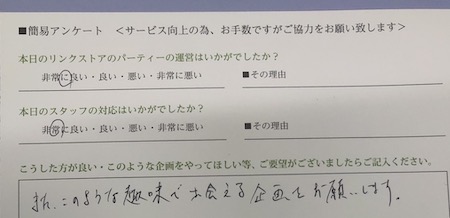 ■簡易アンケート ＜サービス向上の為、お手数ですがご協力をお願い致します＞
本日のリンクストアのパーティーの運営はいかがでしたか？
非常に良い・良い・悪い・非常に悪い ■その理由
本日のスタッフの対応はいかがでしたか？
非常に良い・良い・悪い・非常に悪い ■その理由
こうした方が良い・このような企画をやってほしい等、ご要望がございましたらご記入ください。
また、このような趣味で出会える企画をお願いします。